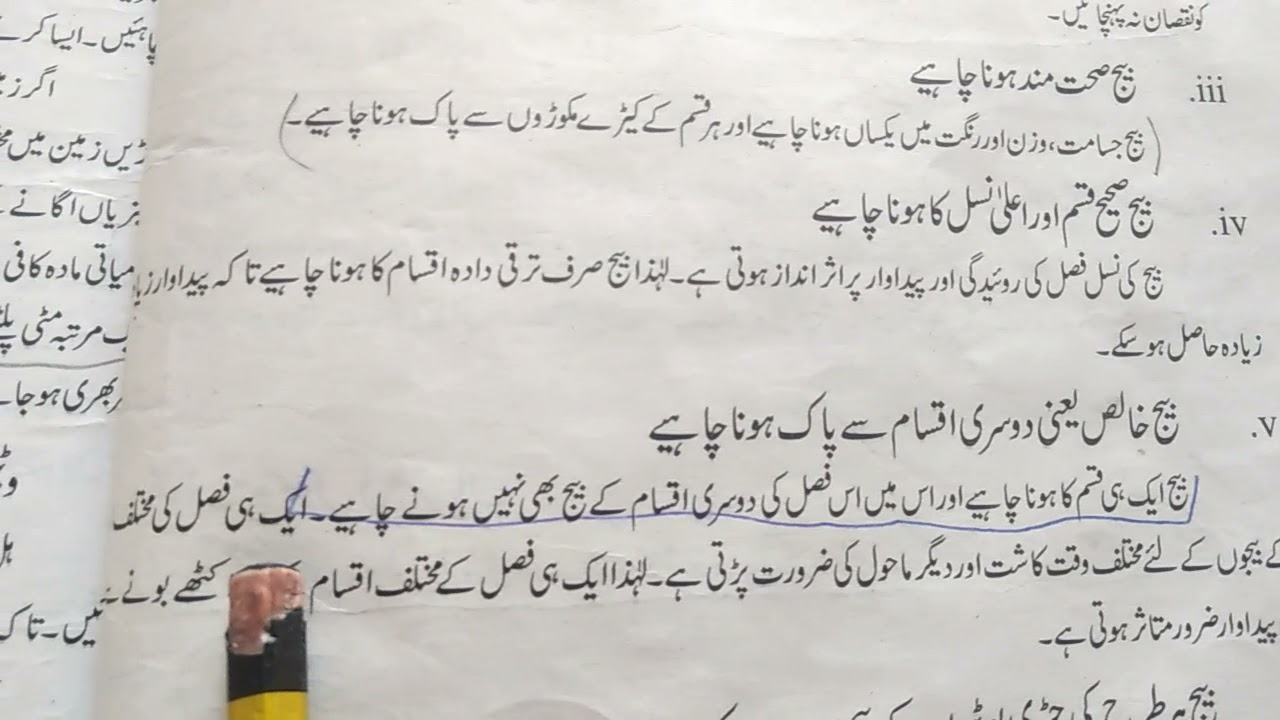 کو نقصان نہ پہنچائیں۔
iii. بیج صحت مند ہونا چاہیے
(بیج جسامت، وزن اور رنگت میں یکساں ہونا چاہیے اور ہر قسم کے کیڑے مکوڑوں سے پاک ہونا چاہیے۔)
iv. بیج صحیح قسم اور اعلیٰ نسل کا ہونا چاہیے
بیج کی نسل فصل کی روئیدگی اور پیداوار پر اثر انداز ہوتی ہے۔ لہٰذا بیج صرف ترقی دادہ اقسام کا ہونا چاہیے تاکہ پیداوار
زیادہ حاصل ہو سکے۔
v. بیج خالص یعنی دوسری اقسام سے پاک ہونا چاہیے
بیج ایک ہی قسم کا ہونا چاہیے اور اس میں اس فصل کی دوسری اقسام کے بیج بھی نہیں ہونے چاہیے۔ ایک ہی فصل کی مختلف
کے بیجوں کے لئے مختلف وقت کاشت اور دیگر ماحول کی ضرورت پڑتی ہے۔ لہٰذا ایک ہی فصل کے مختلف اقسام کٹھے بونے
پیداوار ضرور متاثر ہوتی ہے۔
بیج ہر طرح کی
پاہئیں۔ ایسا کر
اگر ز
زمین میں
اگانے
مادہ کافی
مرتبہ مٹی
بھری ہو جا
تاک